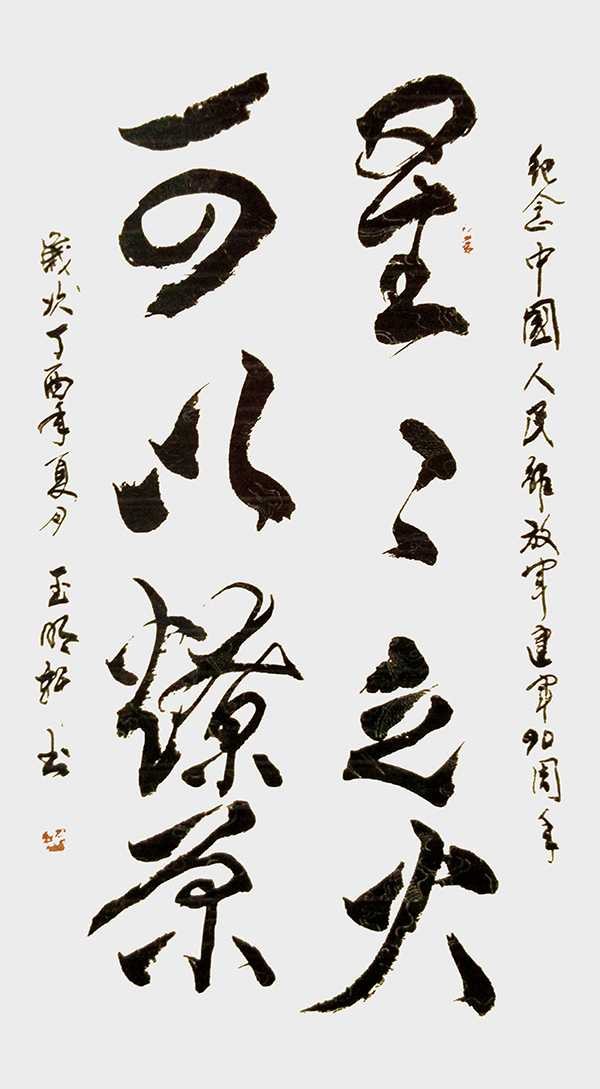 纪念中國人民解放军建军90周年
星〻之火
可以燎原
歲次丁酉年夏月 玉明轩书